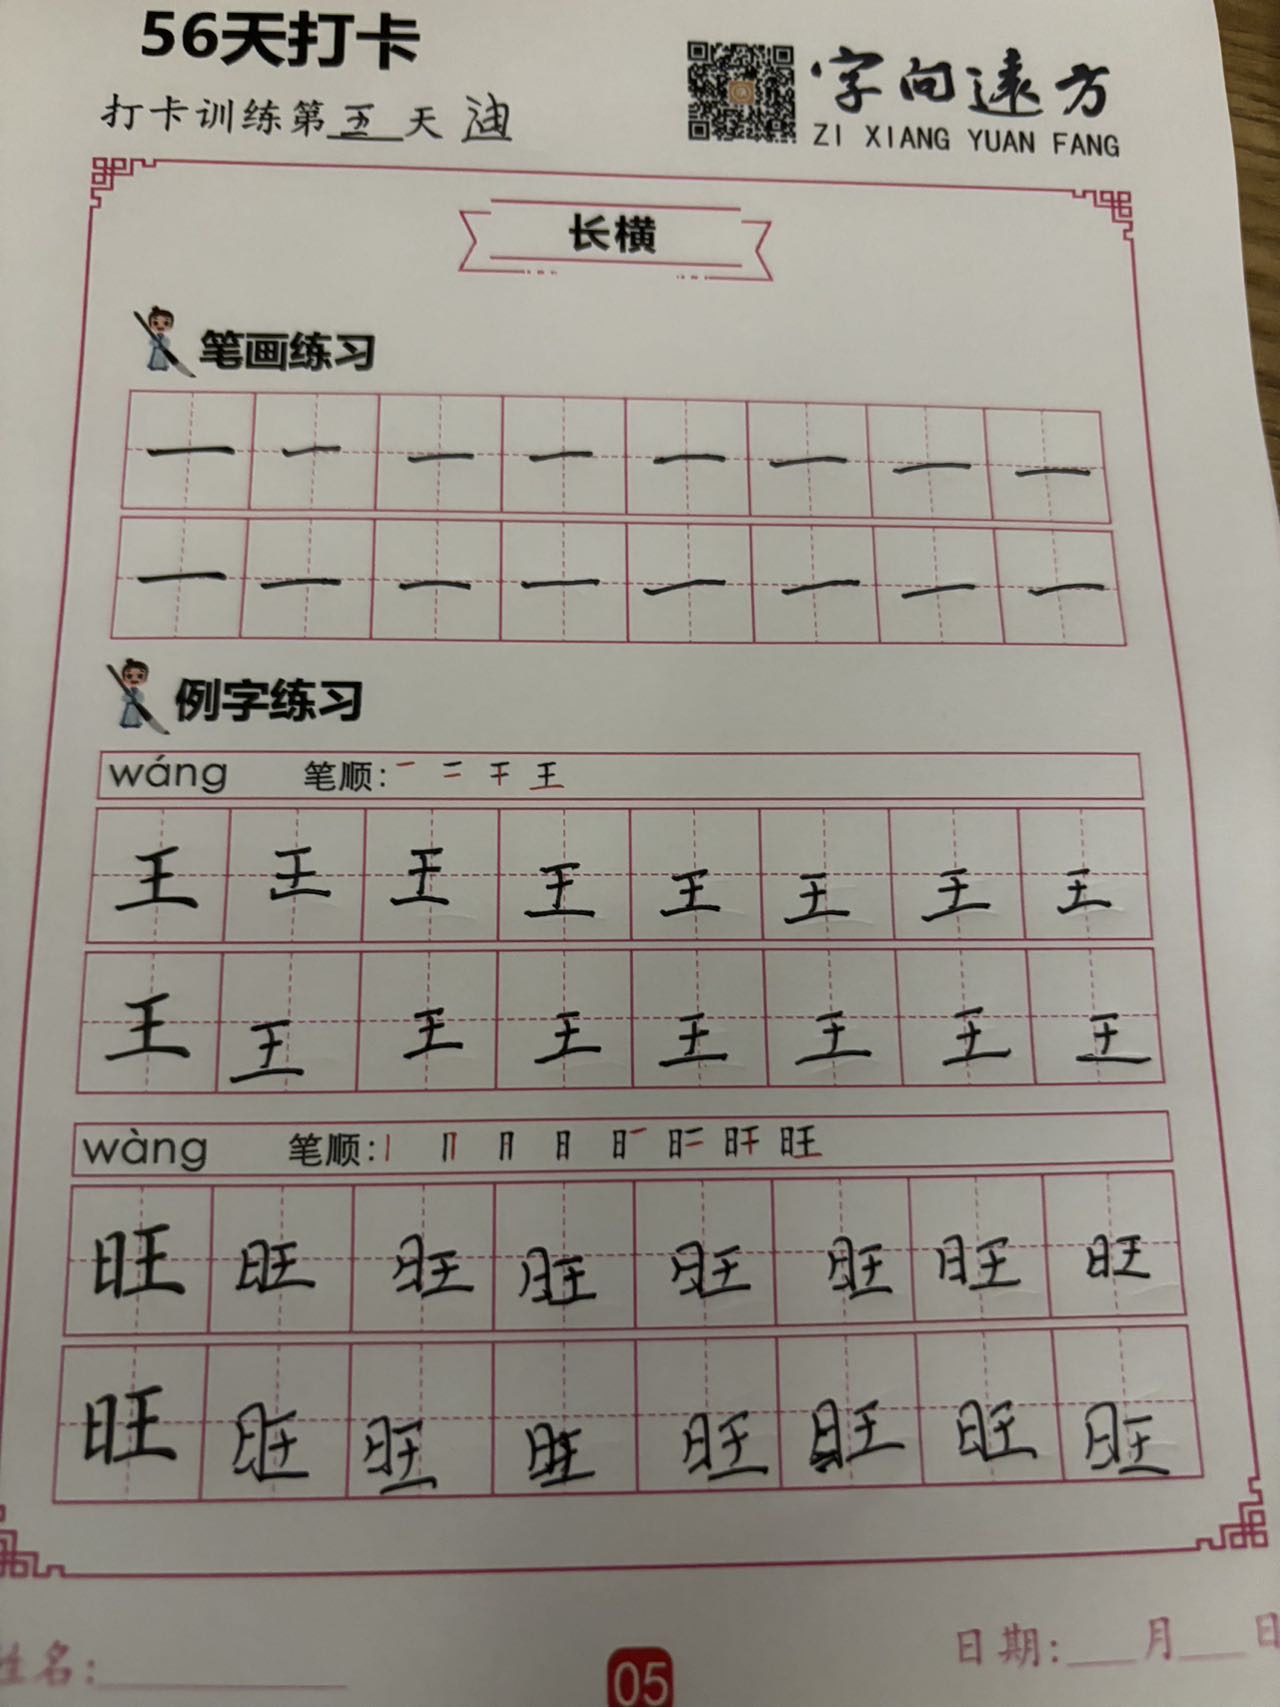 56天打卡
字向远方
打卡训练第五天 油
ZI XIANG YUAN FANG
长横
笔画练习
一 一 一 一 一 一 一 一
一 一 一 一 一 一 一 一
例字练习
wáng 笔顺: 一 二 干 王
王 王 王 王 王 王 王 王
王 王 王 王 王 王 王 王
wàng 笔顺: 丨 冂 月 日 旺
旺 旺 旺 旺 旺 旺 旺 旺
旺 旺 旺 旺 旺 旺 旺 旺
姓名:
日期: 月 日
05